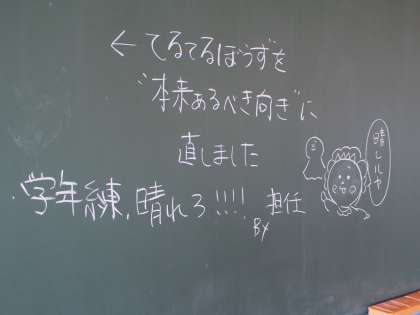 ← てるてるぼうずを
"本来あるべき向き"に
直しました
学年練、晴れろ!!!!
By 担任
晴レルヤ